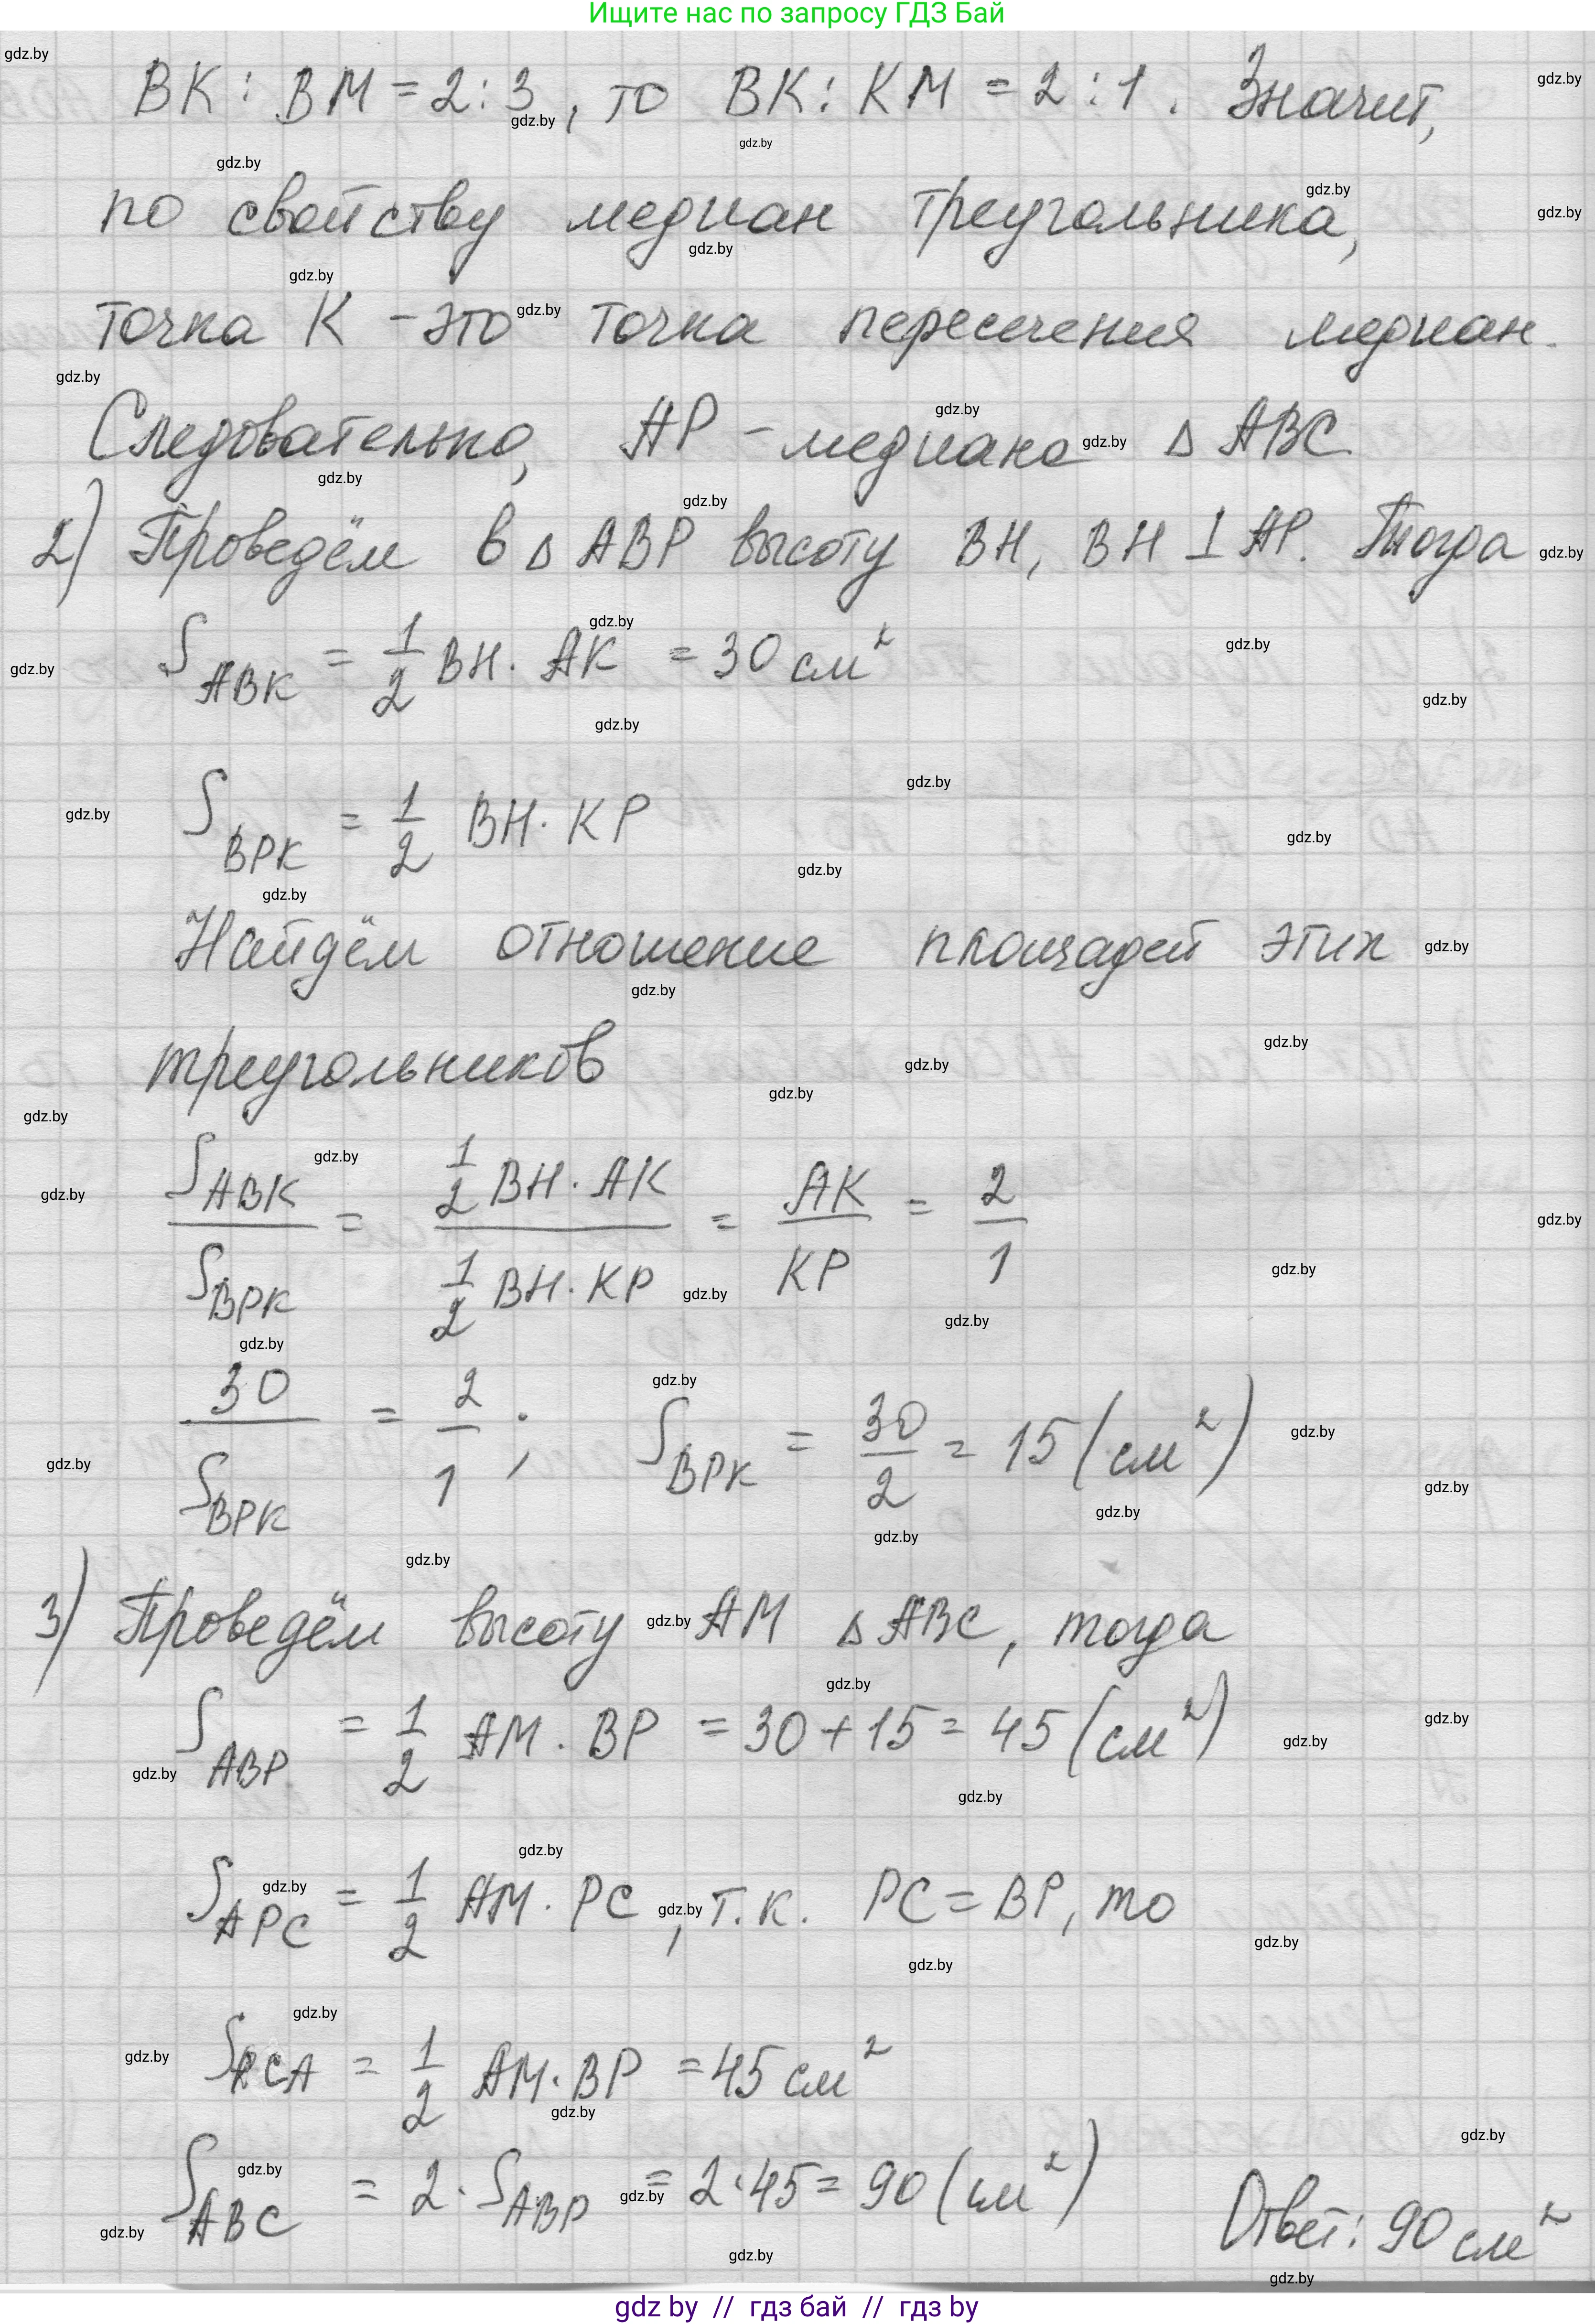 Ищите нас по запросу ГДЗ Бай
BK : BM = 2 : 3, то BK : KM = 2 : 1. Значит,
по свойству медиан треугольника,
точка K - это точка пересечения медиан.
Следовательно, AP - медиана △ ABC
2) Проведём в △ ABP высоту BH, BH ⊥ AP. Тогда
S_ABK = 1/2 BH · AK = 30 см²
S_BPK = 1/2 BH · KP
Найдём отношение площадей этих
треугольников
S_ABK / S_BPK = (1/2 BH · AK) / (1/2 BH · KP) = AK / KP = 2/1
30 / S_BPK = 2/1 ; S_BPK = 30/2 = 15 (см²)
3) Проведём высоту AM △ ABC, тогда
S_ABP = 1/2 AM · BP = 30 + 15 = 45 (см²)
S_APC = 1/2 AM · PC, т.к. PC = BP, то
S_PCA = 1/2 AM · BP = 45 см²
S_ABC = 2 · S_ABP = 2 · 45 = 90 (см²)
Ответ: 90 см²
gdz by // гдз бай // гдз by